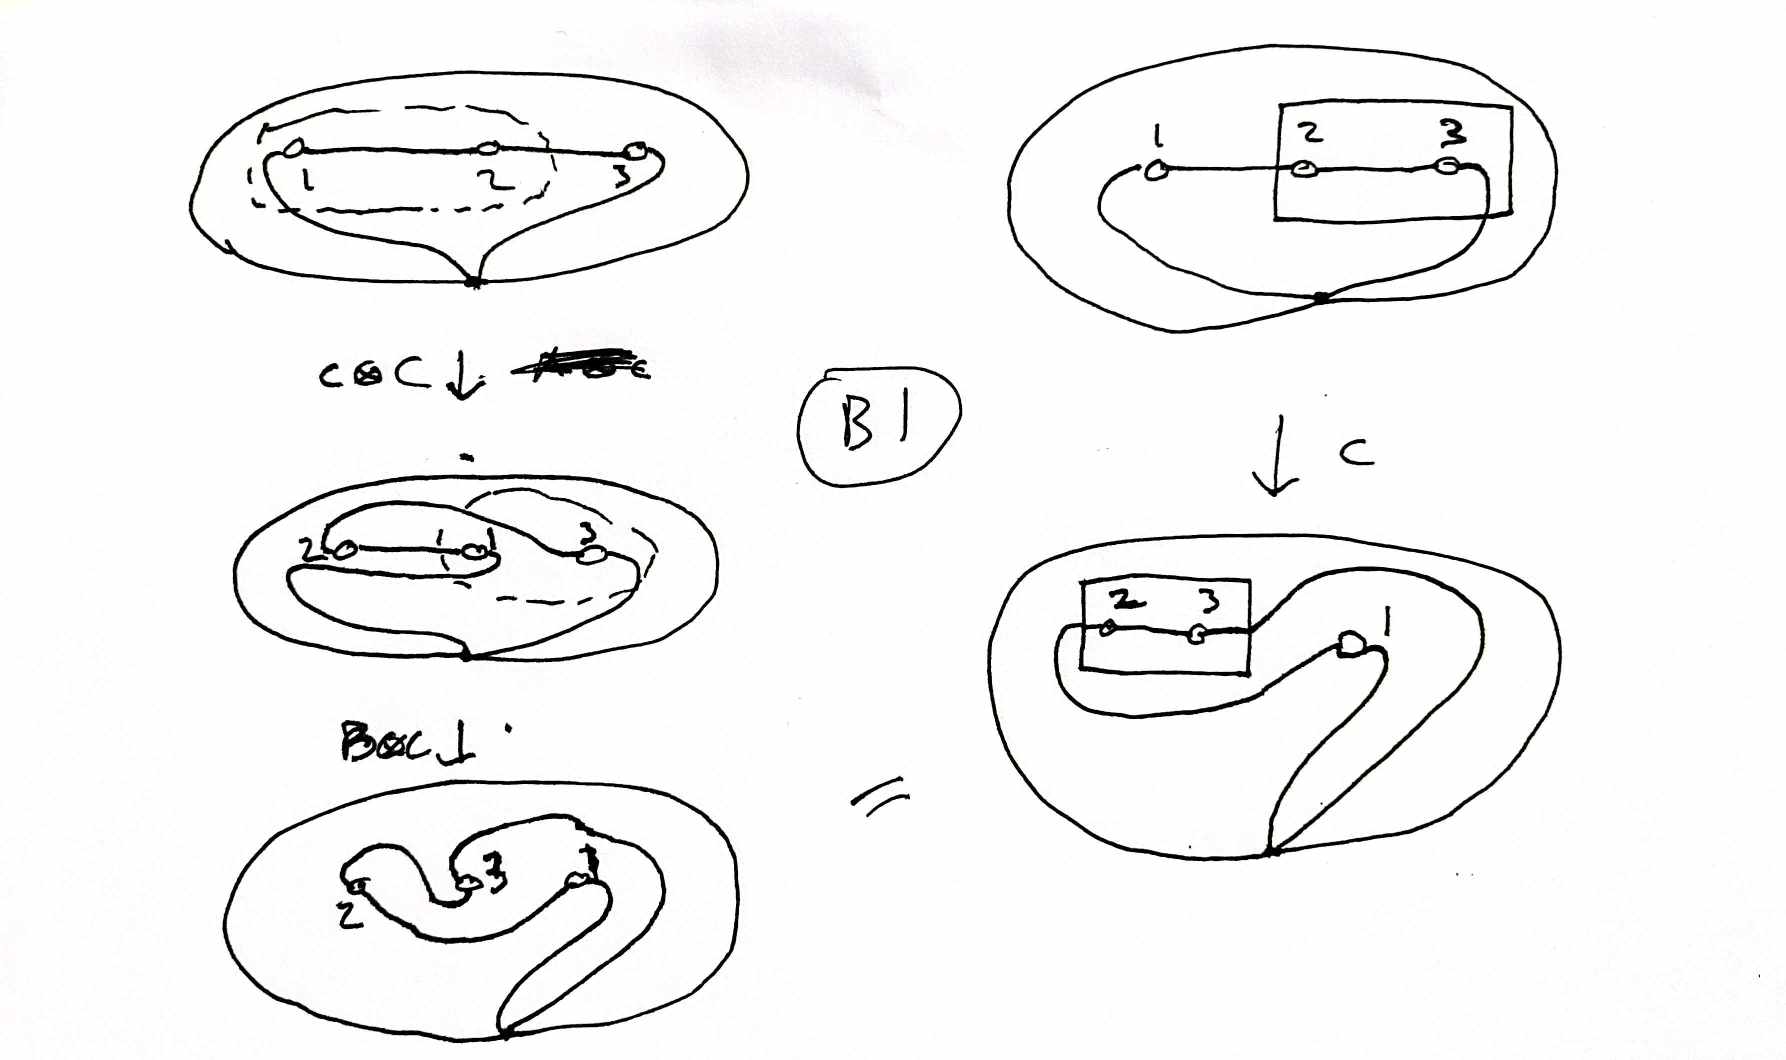 1 2 3
c⊗C ↓
2 1 3
B⊗C ↓
2 3 1
B1
1 2 3
↓ C
2 3 1
=